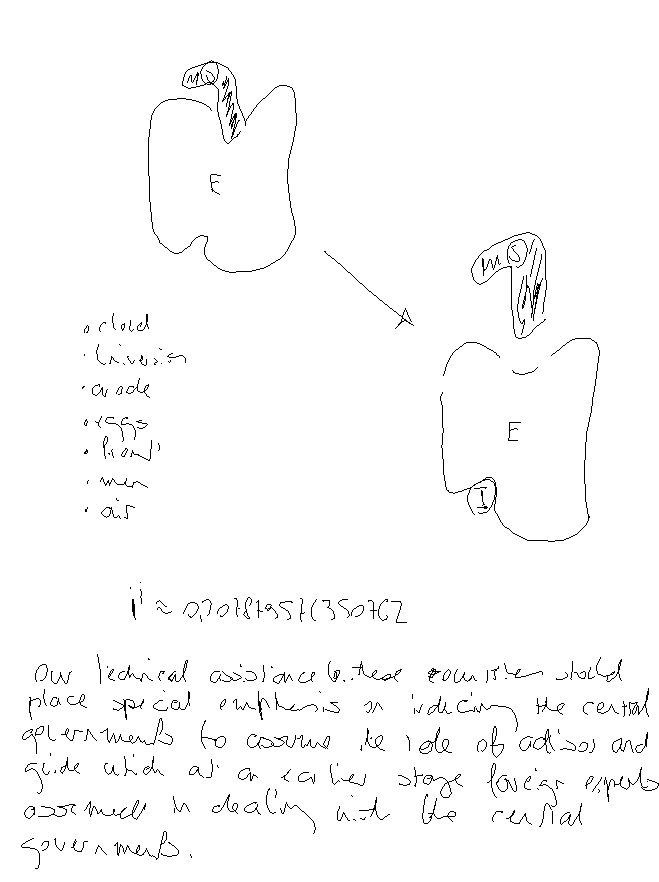 M S
E
M S
E
I
• eggs
• men
• air
iⁱ ≈ 0,207879576350762
Our technical assistance to these countries should
place special emphasis on inducing the central
governments to assume the role of advisor and
guide which at an earlier stage foreign experts
assumed in dealing with the central
governments.